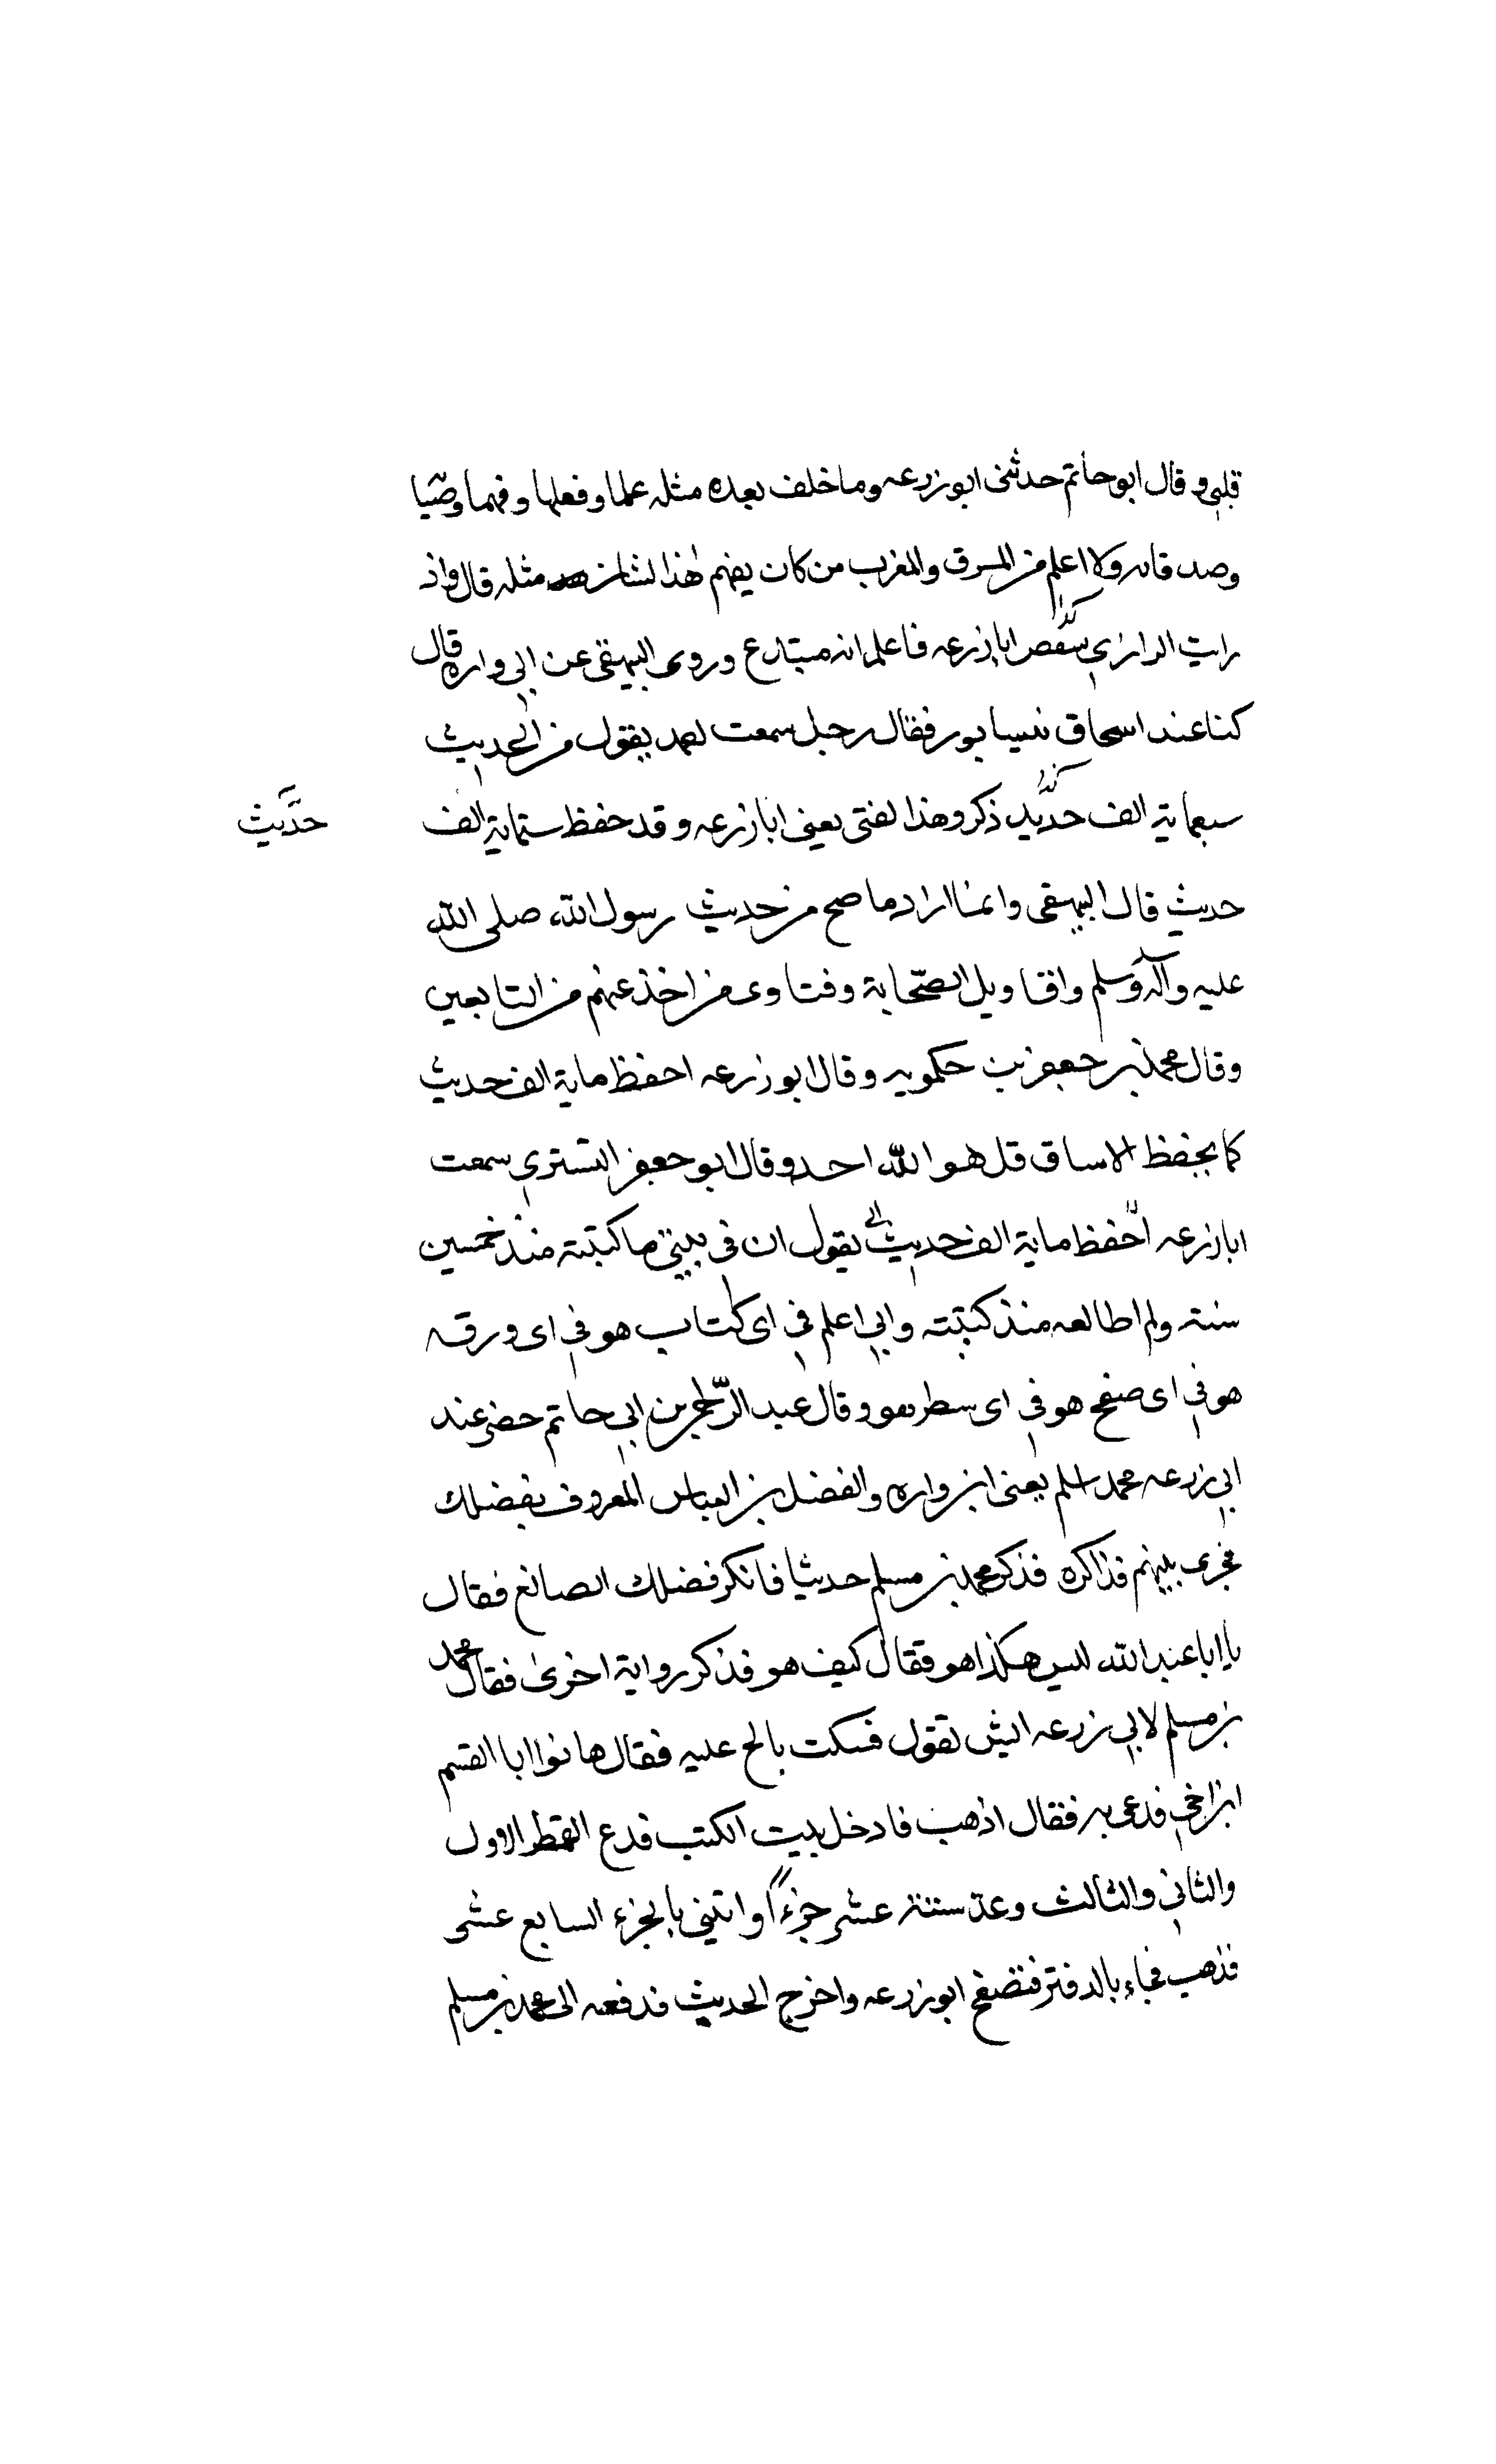 قلبي وقال ابو حاتم حدثنى ابو زرعه وما خلف بعده مثله علما وفعلها وفهما وصيا
وصدقا وكلا اعلم من المشرق والمغرب من كان يفهم هذا لشان مثله قال واذ
رايت الرازي ينقص ابا زرعه فاعلم انه مبتدع وروى البيهقى عن ابي واره قال
كنا عند اسحاق بنيسابور فقال رجل سمعت احمد يقول من الحديث
سبعماية الف حديث ذكر وهذا لفتى يعنى ابا زرعه وقد حفظ ستماية الف حديث
حديث قال البيهقى وانما اراد ما صح من حديث رسول الله صلى الله
عليه وآله وسلم واقاويل الصحابة وفتاوى من اخذ عنهم من التابعين
وقال محمد بن جعفر بن حكمويه وقال ابو زرعه احفظ ماية الف حديث
كما يحفظ الانسان قل هو الله احد وقال ابو جعفر التستري سمعت
ابا زرعه احفظ ماية الف حديث يقول ان فى بيتي ما كتبته منذ خمسين
سنة ولم اطالعه منذ كتبته واني اعلم في اى كتاب هو في اى ورقه
هو في اى صفح هو في اى سطر هو وقال عبد الرحمن بن ابي حاتم حضر عند
ابي زرعه محمد مسلم يعنى ابن واره والفضل بن العباس المعروف بفضلك
فجرى بينهم مذاكره فذكر محمد بن مسلم حديثا فانكر فضلك الصائغ فقال
يا ابا عبد الله ليس هكذا هو فقال كيف هو فذكر رواية اخرى فقال محمد
بن مسلم لابي زرعه ايش تقول فسكت بالح عليه فقال هاتوا ابا القسم
ابن اخي فدعى به فقال اذهب فادخل بيت الكتب فدع القمطر الاول
والثاني والثالث وعد ستة عشر جزءًا واتيني بالجزء السابع عشر
فذهب فجاء بالدفتر فتصفح ابو زرعه واخرج الحديث فدفعه الى محمد بن مسلم